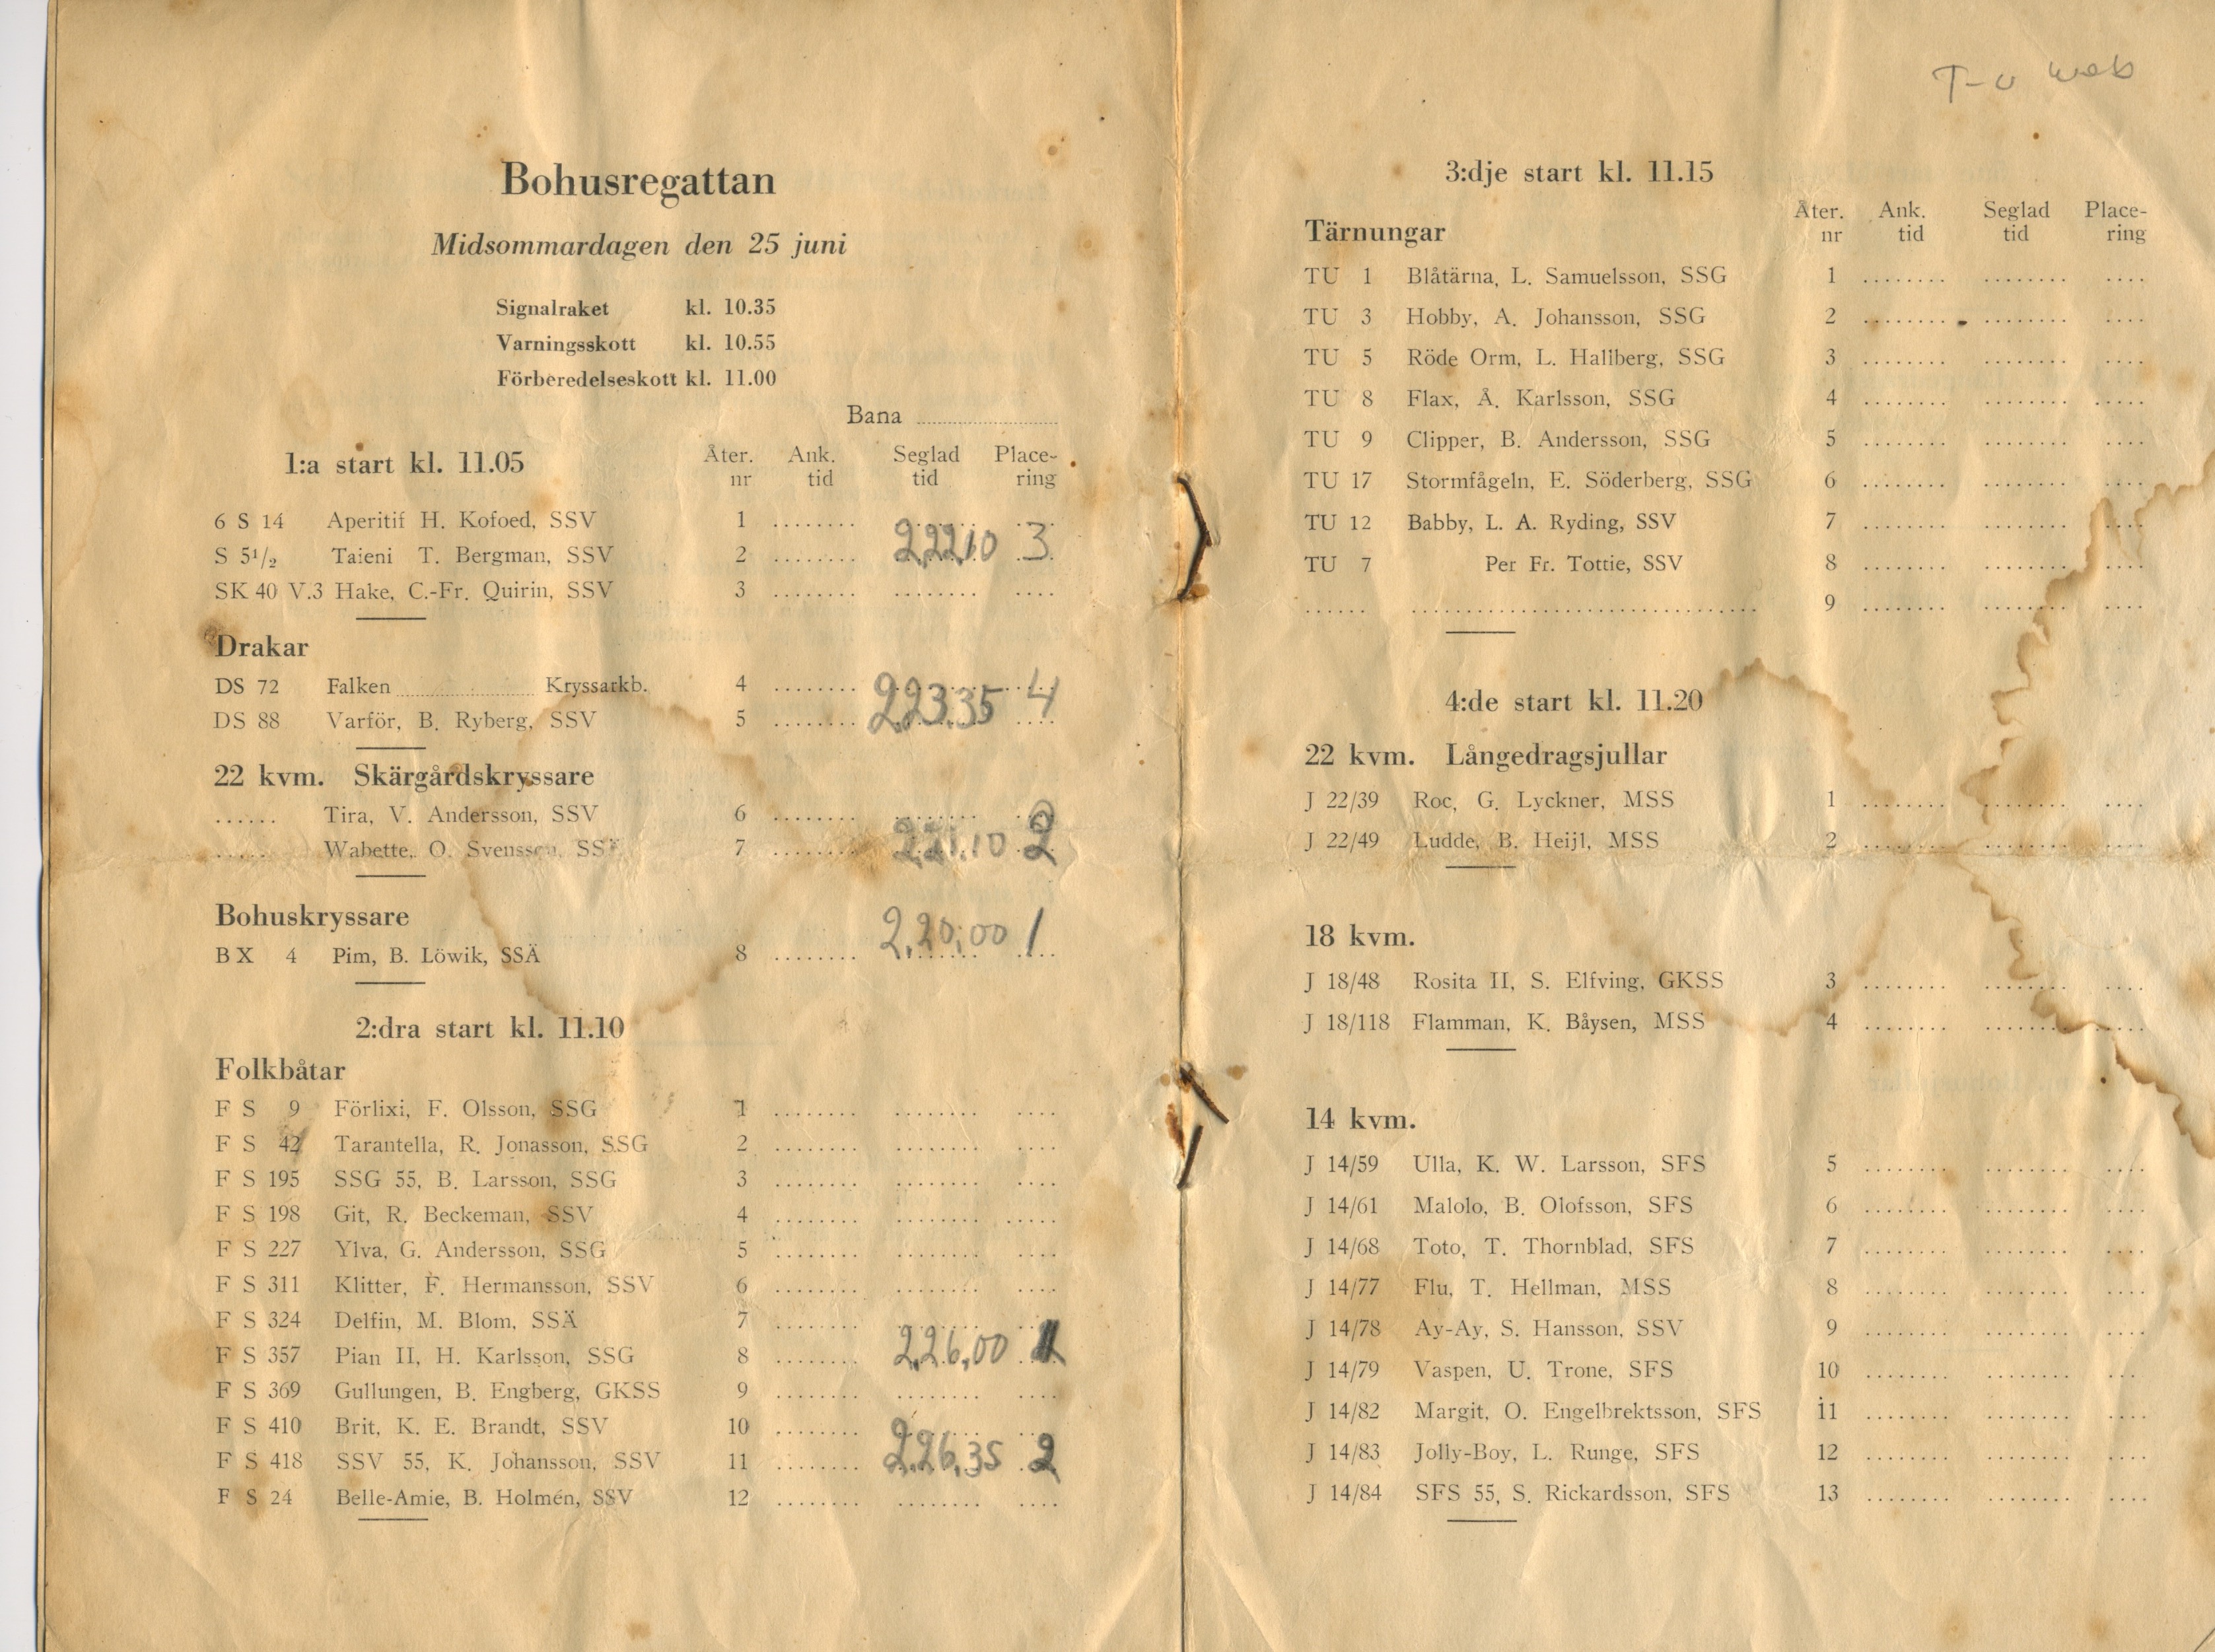 Bohusregattan
Midsommardagen den 25 juni
Signalraket kl. 10.35
Varningsskott kl. 10.55
Förberedelseskott kl. 11.00
Bana
1:a start kl. 11.05 Åter. nr Ank. tid Seglad tid Place-ring
6 S 14 Aperitif H. Kofoed, SSV 1
S 5½ Taieni T. Bergman, SSV 2 2,22,10 3
SK 40 V.3 Hake, C.-Fr. Quirin, SSV 3
Drakar
DS 72 Falken Kryssarkb. 4
DS 88 Varför, B. Ryberg, SSV 5 2,23,35 4
22 kvm. Skärgårdskryssare
Tira, V. Andersson, SSV 6
Wabette, O. Svensson, 7 2,21,10 2
Bohuskryssare
BX 4 Pim, B. Löwik, SSÄ 8 2,20,00 1
2:dra start kl. 11.10
Folkbåtar
F S 9 Förlixi, F. Olsson, SSG 1
F S 42 Tarantella, R. Jonasson, SSG 2
F S 195 SSG 55, B. Larsson, SSG 3
F S 198 Git, R. Beckeman, SSV 4
F S 227 Ylva, G. Andersson, SSG 5
F S 311 Klitter, F. Hermansson, SSV 6
F S 324 Delfin, M. Blom, SSÄ 7
F S 357 Pian II, H. Karlsson, SSG 8 2,26,00 1
F S 369 Gullungen, B. Engberg, GKSS 9
F S 410 Brit, K. E. Brandt, SSV 10
F S 418 SSV 55, K. Johansson, SSV 11 2,26,35 2
F S 24 Belle-Amie, B. Holmén, SSV 12
3:dje start kl. 11.15
Tärnungar Åter. nr Ank. tid Seglad tid Place-ring
TU 1 Blåtärna, L. Samuelsson, SSG 1
TU 3 Hobby, A. Johansson, SSG 2
TU 5 Röde Orm, L. Hallberg, SSG 3
TU 8 Flax, Å. Karlsson, SSG 4
TU 9 Clipper, B. Andersson, SSG 5
TU 17 Stormfågeln, E. Söderberg, SSG 6
TU 12 Babby, L. A. Ryding, SSV 7
TU 7 Per Fr. Tottie, SSV 8
9
4:de start kl. 11.20
22 kvm. Långedragsjullar
J 22/39 Roc, G. Lyckner, MSS 1
J 22/49 Ludde, B. Heijl, MSS 2
18 kvm.
J 18/48 Rosita II, S. Elfving, GKSS 3
J 18/118 Flamman, K. Båysen, MSS 4
14 kvm.
J 14/59 Ulla, K. W. Larsson, SFS 5
J 14/61 Malolo, B. Olofsson, SFS 6
J 14/68 Toto, T. Thornblad, SFS 7
J 14/77 Flu, T. Hellman, MSS 8
J 14/78 Ay-Ay, S. Hansson, SSV 9
J 14/79 Vaspen, U. Trone, SFS 10
J 14/82 Margit, O. Engelbrektsson, SFS 11
J 14/83 Jolly-Boy, L. Runge, SFS 12
J 14/84 SFS 55, S. Rickardsson, SFS 13